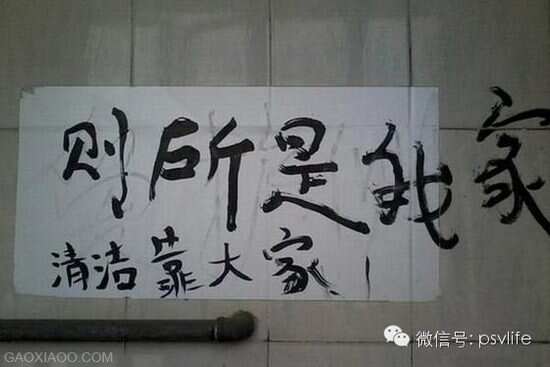 则所是我家
清洁靠大家！
微信号: psvlife
GAOXIAOO.COM